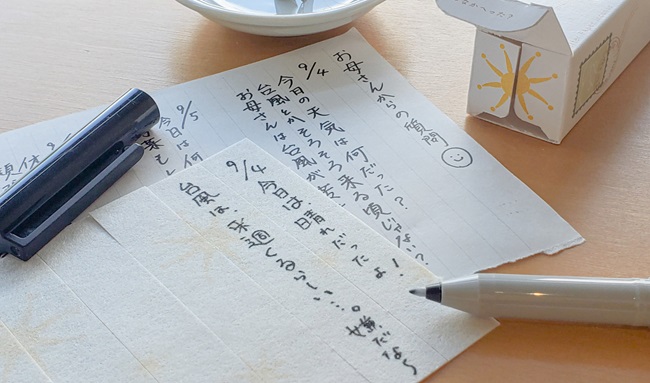 なかへった?
お母さんからの質問
9/4
今日の天気は何だった?
台風とかそろそろ来る頃じゃない?
お母さんは台風が
9/5
今日は何
9/4
今日は、晴れだったよ!
台風は、来週くるらしい…。
嫌だなぁ〜